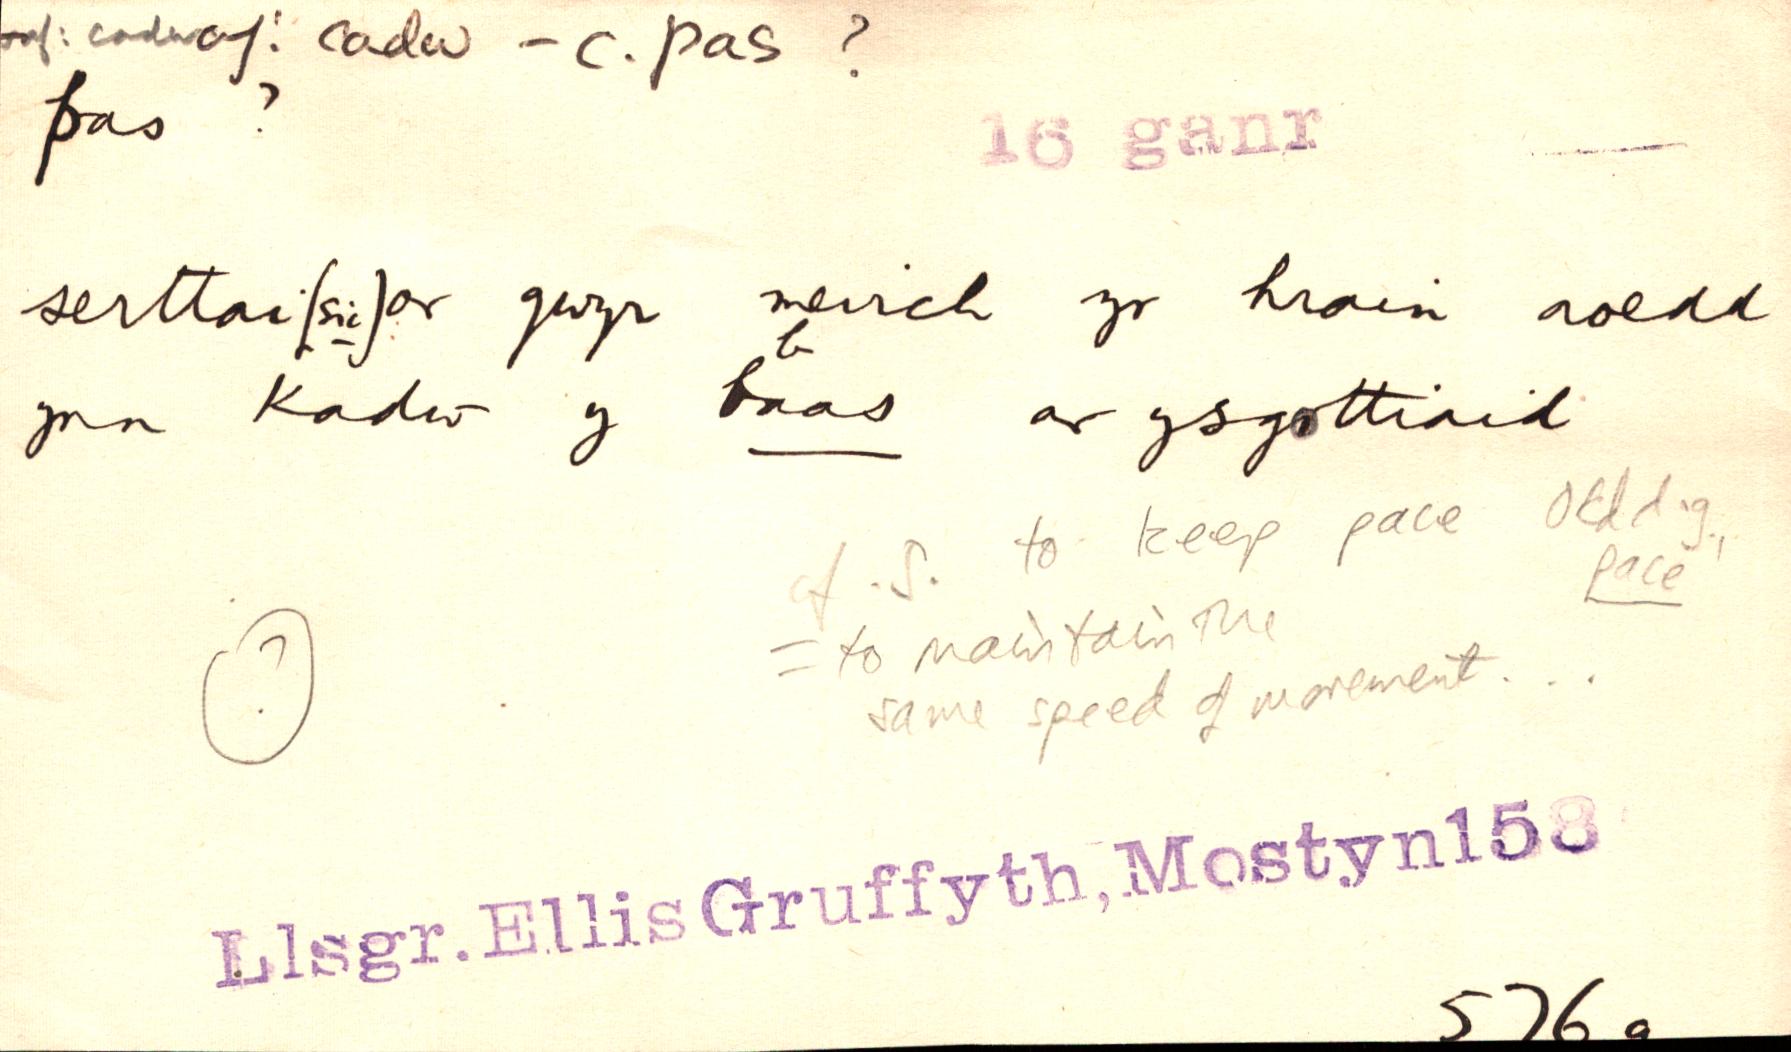 cadwaf: cadw – c. pas ?
pas ?
16 ganr
serttai [sic] or gwyr meirch yr hrain aoedd
b
ynn Kadw y baas ar ysgottiaid
cf. S. to keep pace Oedd. g.,
pace
= to maintain the
same speed of movement . . .
?
Llsgr. Ellis Gruffyth, Mostyn 158
576a